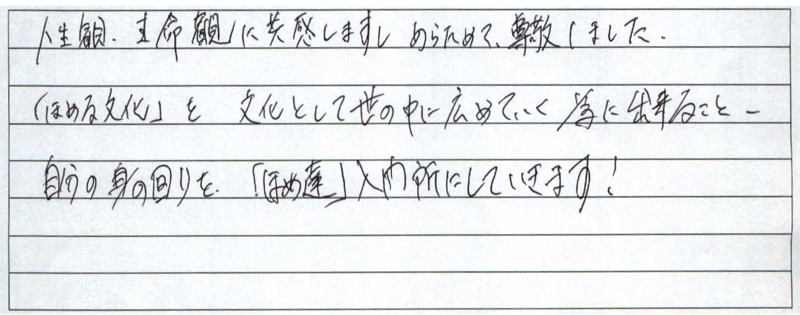 人生観、生命観に共感しますし あらためて、尊敬しました。
「ほめる文化」を 文化として世の中に広めていく為に出来ること−
自分の身の回りを、「ほめ達」入門所にしていきます！